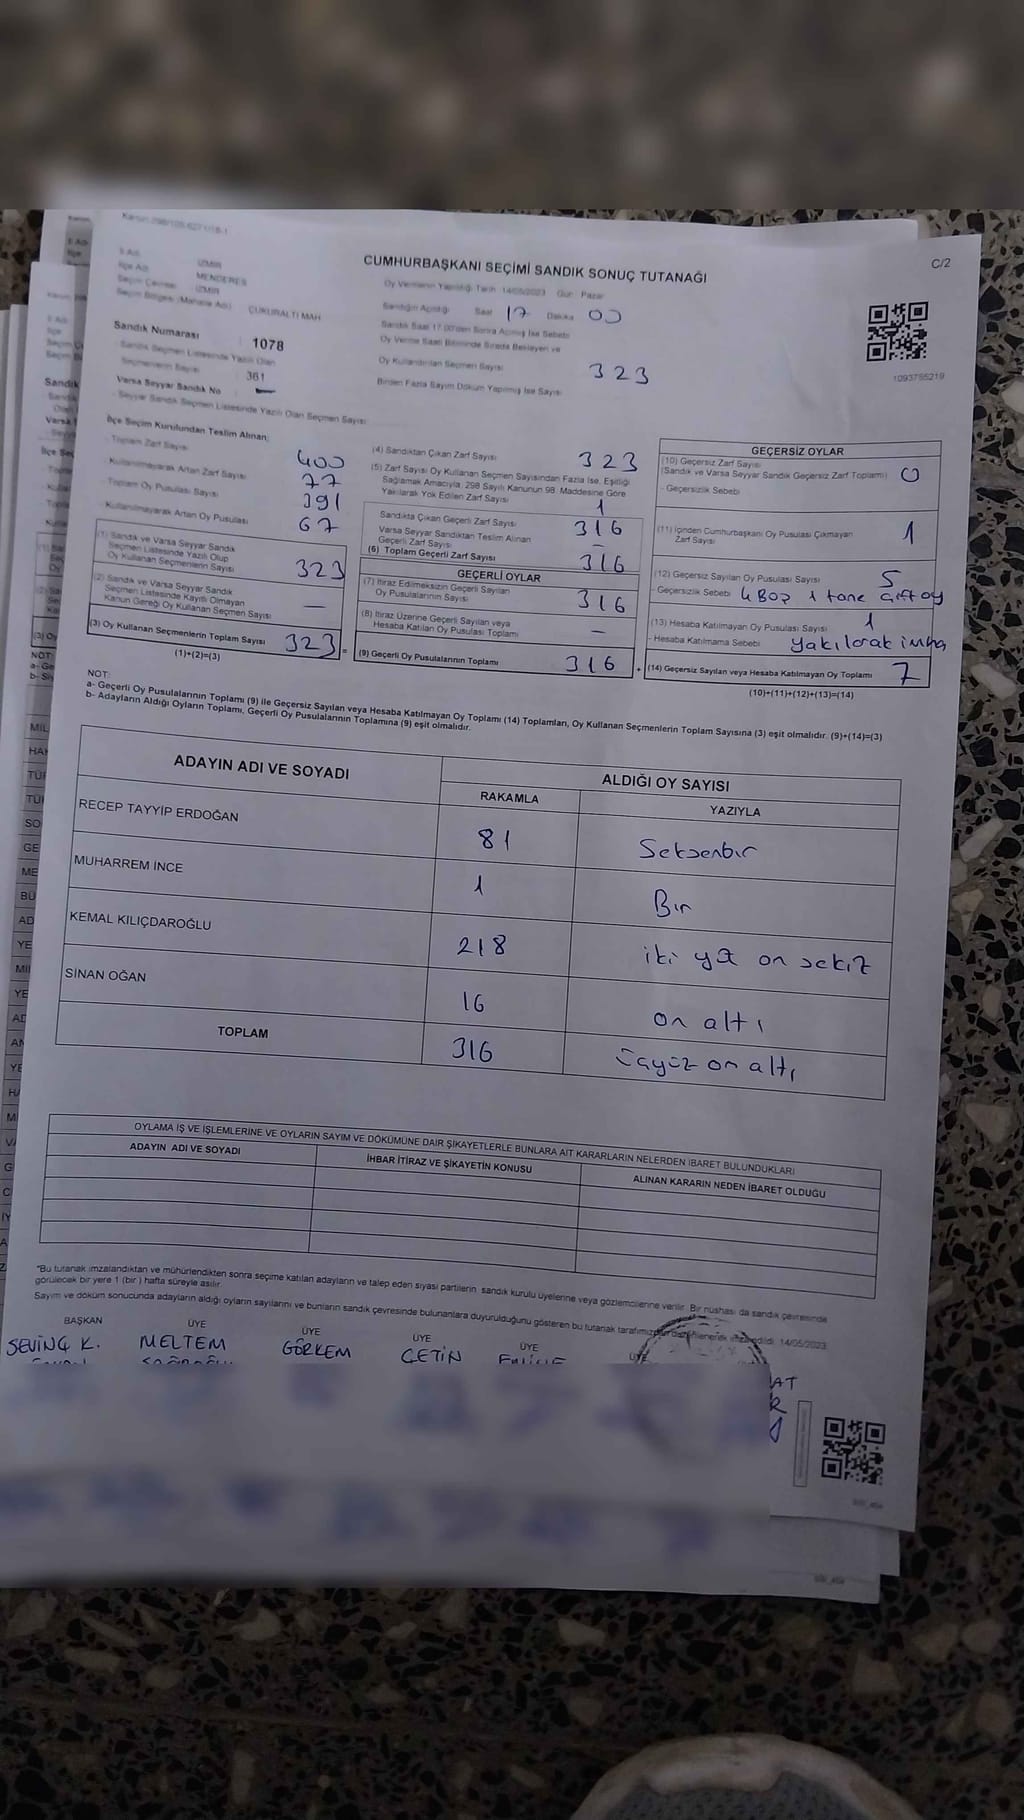 CUMHURBAŞKANI SEÇİMİ SANDIK SONUÇ TUTANAĞI
C/2
İl Adı İZMİR
İlçe Adı MENDERES
Seçim Çevresi İZMİR
Seçim Bölgesi (Mahalle Adı) ÇUKURALTI MAH
Sandık Numarası 1078
Sandık Seçmen Listesinde Yazılı Olan
Seçmenlerin Sayısı 361
Varsa Seyyar Sandık No
Seyyar Sandık Seçmen Listesinde Yazılı Olan Seçmen Sayısı
Oy Vermenin Yapıldığı Tarih 14/05/2023 Gün Pazar
Sandığın Açıldığı Saat 17 Dakika 00
Sandık Saat 17.00'den Sonra Açılmış İse Sebebi
Oy Verme Saati Bitiminde Sırada Bekleyen ve
Oy Kullandırılan Seçmen Sayısı 323
Birden Fazla Sayım Döküm Yapılmış İse Sayısı
1093755219
İlçe Seçim Kurulundan Teslim Alınan;
- Toplam Zarf Sayısı 400
- Kullanılmayarak Artan Zarf Sayısı 77
- Toplam Oy Pusulası Sayısı 391
- Kullanılmayarak Artan Oy Pusulası 67
(1) Sandık ve Varsa Seyyar Sandık
Seçmen Listesinde Yazılı Olup
Oy Kullanan Seçmenlerin Sayısı 323
(2) Sandık ve Varsa Seyyar Sandık
Seçmen Listesinde Kayıtlı Olmayan
Kanun Gereği Oy Kullanan Seçmen Sayısı —
(3) Oy Kullanan Seçmenlerin Toplam Sayısı 323
(1)+(2)=(3)
(4) Sandıktan Çıkan Zarf Sayısı 323
(5) Zarf Sayısı Oy Kullanan Seçmen Sayısından Fazla İse, Eşitliği
Sağlamak Amacıyla, 298 Sayılı Kanunun 98. Maddesine Göre
Yakılarak Yok Edilen Zarf Sayısı 1
Sandıkta Çıkan Geçerli Zarf Sayısı 316
Varsa Seyyar Sandıktan Teslim Alınan
Geçerli Zarf Sayısı –
(6) Toplam Geçerli Zarf Sayısı 316
GEÇERLİ OYLAR
(7) İtiraz Edilmeksizin Geçerli Sayılan
Oy Pusulalarının Sayısı 316
(8) İtiraz Üzerine Geçerli Sayılan veya
Hesaba Katılan Oy Pusulası Toplamı —
= (9) Geçerli Oy Pusulalarının Toplamı 316
GEÇERSİZ OYLAR
(10) Geçersiz Zarf Sayısı
(Sandık ve Varsa Seyyar Sandık Geçersiz Zarf Toplamı) 0
- Geçersizlik Sebebi
(11) İçinden Cumhurbaşkanı Oy Pusulası Çıkmayan
Zarf Sayısı 1
(12) Geçersiz Sayılan Oy Pusulası Sayısı 5
- Geçersizlik Sebebi 4 Boş 1 tane çift oy
(13) Hesaba Katılmayan Oy Pusulası Sayısı 1
- Hesaba Katılmama Sebebi yakılarak imha
+ (14) Geçersiz Sayılan veya Hesaba Katılmayan Oy Toplamı 7
(10)+(11)+(12)+(13)=(14)
NOT:
a- Geçerli Oy Pusulalarının Toplamı (9) ile Geçersiz Sayılan veya Hesaba Katılmayan Oy Toplamı (14) Toplamları, Oy Kullanan Seçmenlerin Toplam Sayısına (3) eşit olmalıdır. (9)+(14)=(3)
b- Adayların Aldığı Oyların Toplamı, Geçerli Oy Pusulalarının Toplamına (9) eşit olmalıdır.
ADAYIN ADI VE SOYADI ALDIĞI OY SAYISI
RAKAMLA YAZIYLA
RECEP TAYYİP ERDOĞAN 81 Seksenbir
MUHARREM İNCE 1 Bir
KEMAL KILIÇDAROĞLU 218 iki yüz on sekiz
SİNAN OĞAN 16 on altı
TOPLAM 316 üçyüz on altı
OYLAMA İŞ VE İŞLEMLERİNE VE OYLARIN SAYIM VE DÖKÜMÜNE DAİR ŞİKAYETLERLE BUNLARA AİT KARARLARIN NELERDEN İBARET BULUNDUKLARI
ADAYIN ADI VE SOYADI İHBAR İTİRAZ VE ŞİKAYETİN KONUSU ALINAN KARARIN NEDEN İBARET OLDUĞU
*Bu tutanak imzalandıktan ve mühürlendikten sonra seçime katılan adayların ve talep eden siyasi partilerin sandık kurulu üyelerine veya gözlemcilerine verilir. Bir nüshası da sandık çevresinde
görülecek bir yere 1 (bir) hafta süreyle asılır.
Sayım ve döküm sonucunda adayların aldığı oyların sayılarını ve bunların sandık çevresinde bulunanlara duyurulduğunu gösteren bu tutanak tarafımızdan düzenlenerek imzalandı. 14/05/2023
BAŞKAN ÜYE ÜYE ÜYE ÜYE ÜYE
SEVİNÇ K. MELTEM GÖRKEM ÇETİN